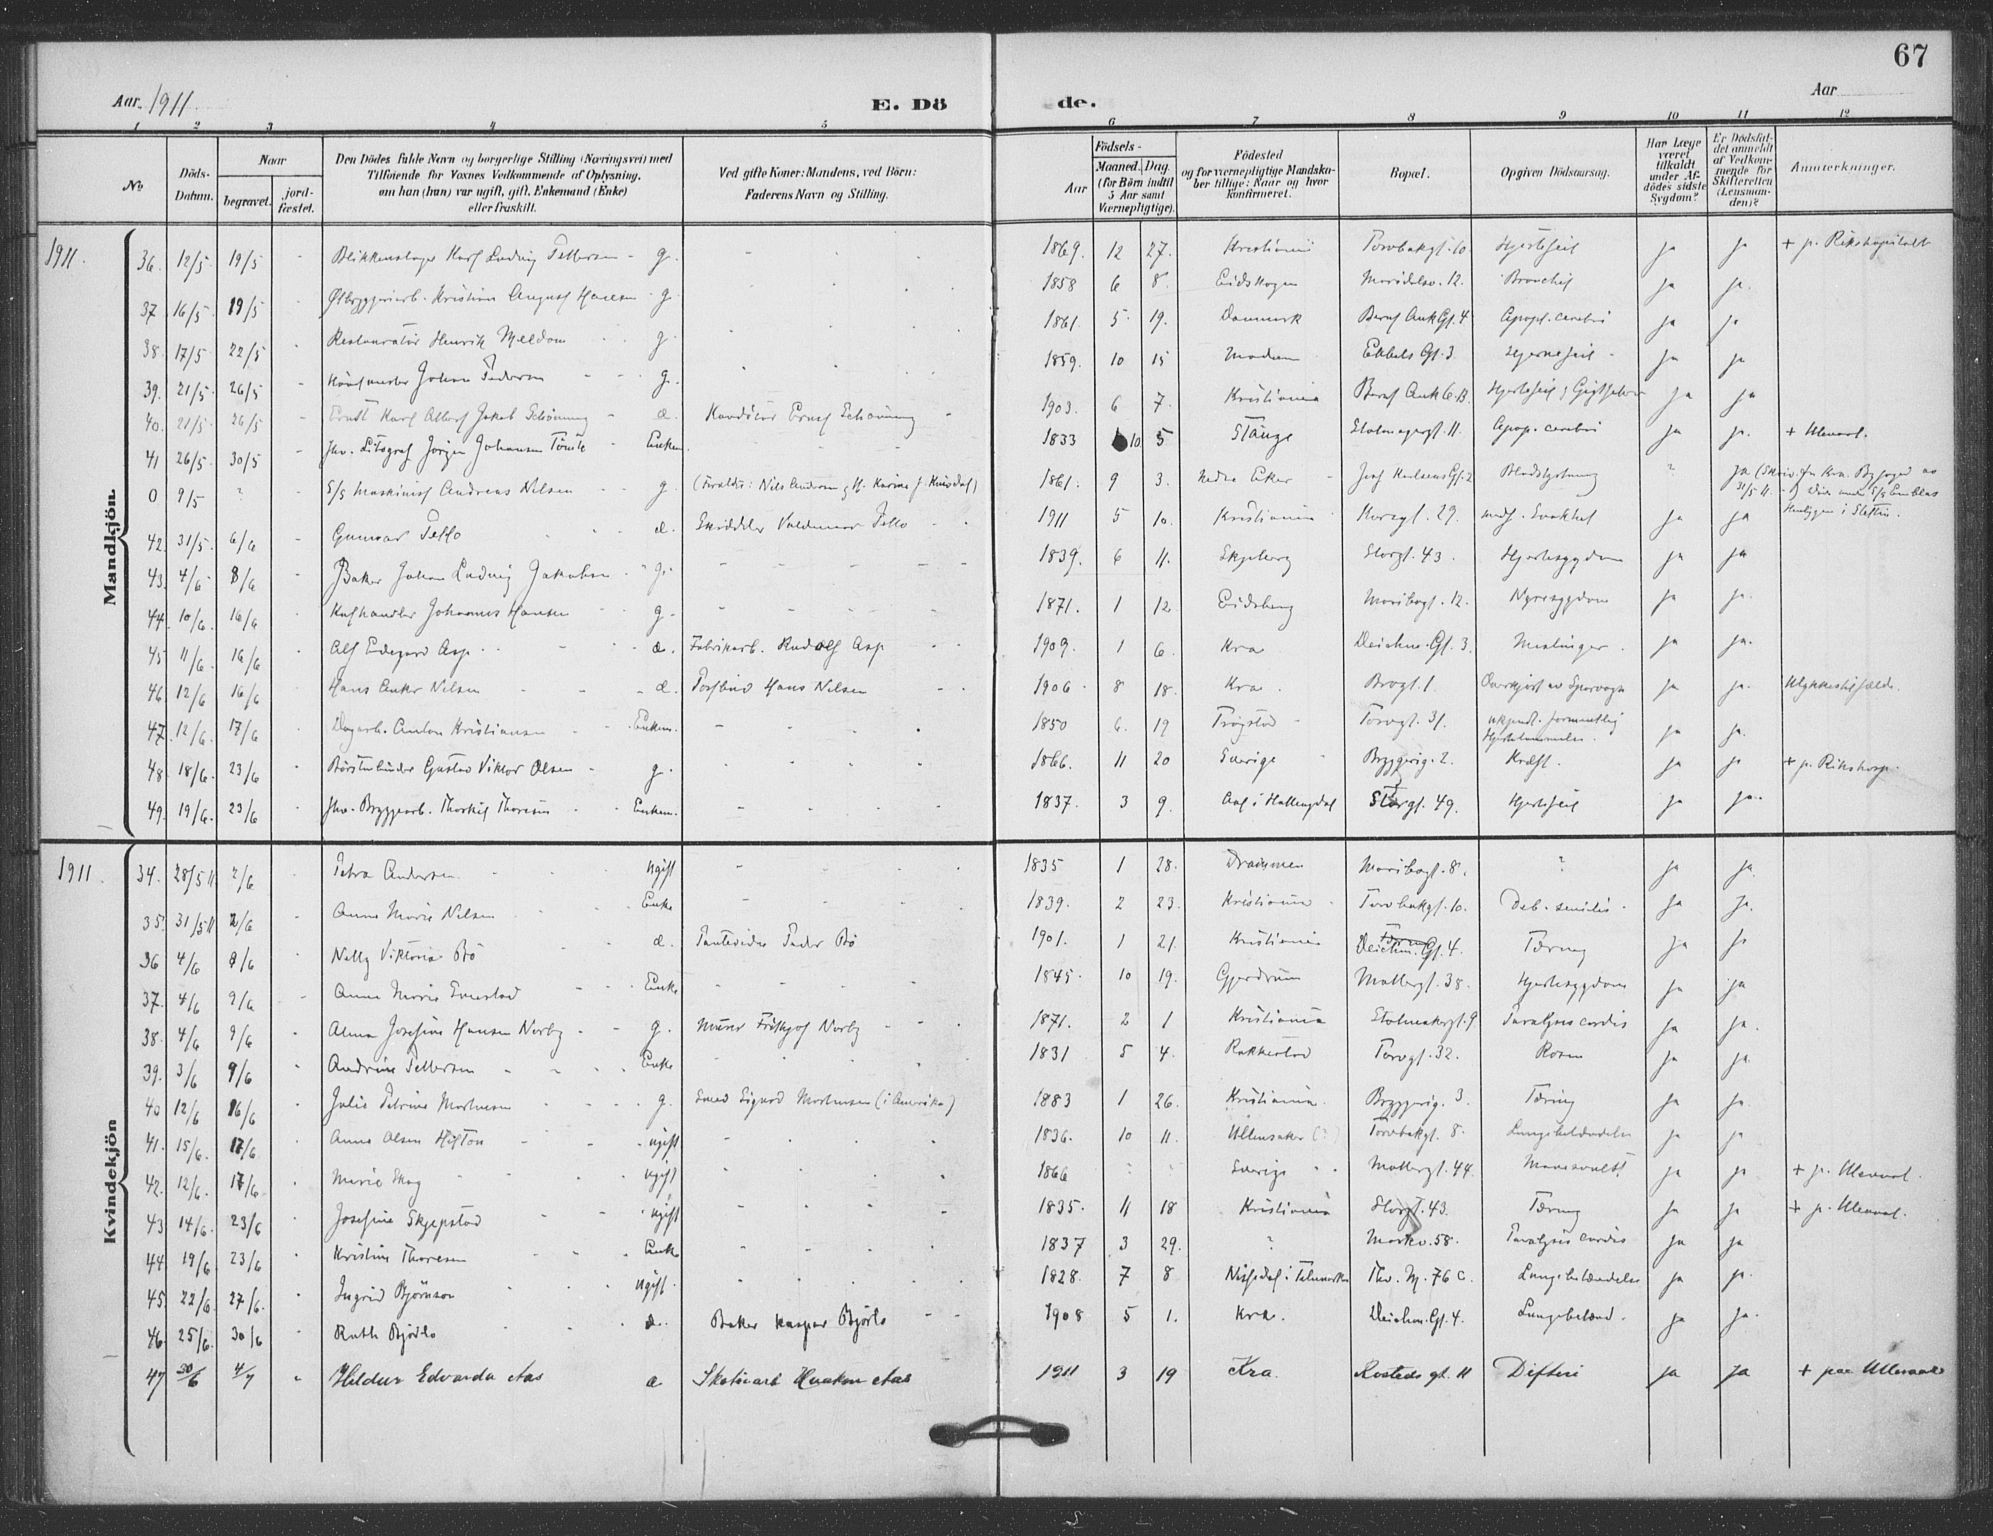 67
Aar. 1911
E. Döde.
Aar
1 2 3 4 5 6 7 8 9 10 11 12
No
Döds-Datum.
Naar
begravet.
jord-fæstet.
Den Dödes fulde Navn og borgerlige Stilling (Næringsvei) med
Tilföiende for Voxnes Vedkommende af Oplysning,
om han (hun) var ugift, gift, Enkemand (Enke)
eller fraskilt.
Ved gifte Koner: Mandens, ved Börn:
Faderens Navn og Stilling.
Födsels-
Aar
Maaned. Dag.
(for Börn indtil
5 Aar samt
Værnepligtige).
Födested
og for værnepligtige Mandska-
ber tillige: Naar og hvor
konfirmeret.
Bopæl.
Opgiven Dödsaarsag.
Har Læge
været
tilkaldt
under Af-
dödes sidste
Sygdom?
Er Dödsfal-
det anmeldt
af Vedkom-
mende for
Skifteretten
(Lensman-
den)?
Anmærkninger.
Mandkjön.
1911. 36. 12/5 19/5 - Blikkenslager Karl Ludvig Pettersen - g. 1869. 12 27. Kristiania Torvbakgt. 10 Hjertefeil ja ja + p. Rikshospitalet
37 16/5 19/5 - Ølbryggeriarb. Kristian August Hansen g. 1858 6 8. Eidskogen Maridalsv. 12. Bronchit ja ja.
38. 17/5 22/5 - Restauratör Henrik Meldom g. 1861. 5 19. Danmark Bernt Ank Gt. 4 Apopl. cerebri ja ja
39. 21/5 26/5 - Johan Pedersen g. 1859. 10 15 Modum Eckbols Gt. 3. Hjernefeil - ja ja
40. 21/5 26/5 - Ernst Karl Albert Jakob Schönning d. Konditor Ernst Schönning 1903. 6 7. Kristiania Bernt Ank 6.B. Hjertefeil & Gigtfeber ja ja
41 26/5 30/5 - fhv. Litograf Jörgen Johansen Tömte Enkem. 1833 10 5 Stange Stolmagergt. 11. Apop. cerebri ja ja. + Ulleval.
0 9/5 ? S/S Maskinist Andreas Nilsen g. (Forældre: Nils Andersen & H. Karine f. Knivsdal) 1861. 9 3. Nedre Eker Blodstyrtning ? ja (Skriv. fra Kra. Byfoged av
31/5 11. - S/S
i Stettin.
42. 31/5. 6/6 - Gunnar Pello d. Skrædder Valdemar Pello 1911 5 10. Kristiania Korsgt. 29. ja ja
43. 4/6 8/6 - Baker Johan Ludvig Jakobsen - g. 1839. 6 11. Skjeberg Storgt. 43. Hjertesygdom ja ja
44. 10/6. 16/6 Johannes Hansen g. 1871. 1 12. Eidsberg Maribogt. 12. Nyresygdom ja ja.
45 11/6 16/6 Alf Edegard Asp d. Fabrikarb. Rudolf Asp 1909. 1 6. Kra Deichm. Gt. 3. Meslinger. ja ja.
46 12/6 16/6 Hans Anker Nilsen d. Postbud Hans Nilsen 1906. 8 18. Kra. Brogt. 1. Overkjørt av Sporvogn ja ja. Ulykkestilfælde.
47. 12/6. 17/6 Dagarb. Anton Kristiansen Enkem. 1850 6. 19 Trögstad Torvgt. 31. ukjendt. formentlig
Hjertelammelse. ja ja.
48. 18/6. 23/6 Börstenbinder Gustav Viktor Olsen - g. 1866. 11 20 Sverige Bryggerig. 2. Kræft. ja ja + p. Rikshosp.
49. 19/6. 23/6 fhv. Bryggearb. Thorkil Thoresen Enkem. 1837. 3 9. Aal i Hallingdal Storgt. 49. Hjertefeil ja ja.
Kvindekjön
1911. 34. 28/5 11 2/6 Petra Andersen. ugift 1835 1 28. Drammen Maribogt. 8. ? ja ja.
35. 31/5 11 2/6 Anne Marie Nilsen Enke 1839. 2 23. Kristiania Torvbakgt. 10. Deb. senilis. ja ja.
36 4/6 8/6 Nelly Viktoria Bö d. Peder Bö 1901. 1 21. Kristiania Deichm. Gt. 4. Tæring ja ja
37. 4/6 9/6 Anne Marie Enke 1845. 10 19. Gjerdrum Møllergt. 38. Hjertesygdom ja ja
38. 4/6 9/6 Alma Josefine Hansen Norby g. Murer Fritjof Norby 1871. 2 1 Kristiania Paralysis cordis ja ja.
39. 3/6 9/6 Andrine Pettersen Enke 1831 5 4. Rakkestad Torvgt. 32. Rosen ja ja
40 12/6 16/6 Julie Petrine Mortensen g. Smed Sigurd Mortensen (i Amerika) 1883 1 26. Kristiania. Bryggerig. 3. Tæring ja ja
41. 15/6. 17/6 Anne Olsen Hifton ugift 1836. 10 11. Ullensaker (?) Torvbakgt. 8. Lungebetændelse ja ja
42. 12/6. 17/6. Marie Skog ugift 1866 Sverige Møllergt. 44. Mavesvulst ja ja + p. Ulleval.
43 14/6. 23/6 Josefine Skjepstad ugift 1835. 11 18 Kristiania Storgt. 43. Tæring ja ja + p. Ulleval.
44 19/6 23/6 Kristine Thoresen Enke 1837 3 29. ? Markv. 58. Paralysis cordis ja ja
45. 22/6 27/6. Ingrid Björnson ugift. 1828. 7 8 Nissedal i Telemarken Thv. M. 76 c. Lungebetændelse ja ja.
46. 25/6. 30/6 Ruth Björlo d. Baker Kaspar Bjørlo 1908 5 1. Kra. Deichm. Gt. 4. Lungebetænd. ja ja.
47 30/6 4/7 " Hildur Edvarda Aas d Skotöiarb Haakon Aas 1911 3 19 Kra. Rosteds gt. 11 Difteri ja ja + paa Ullevaal